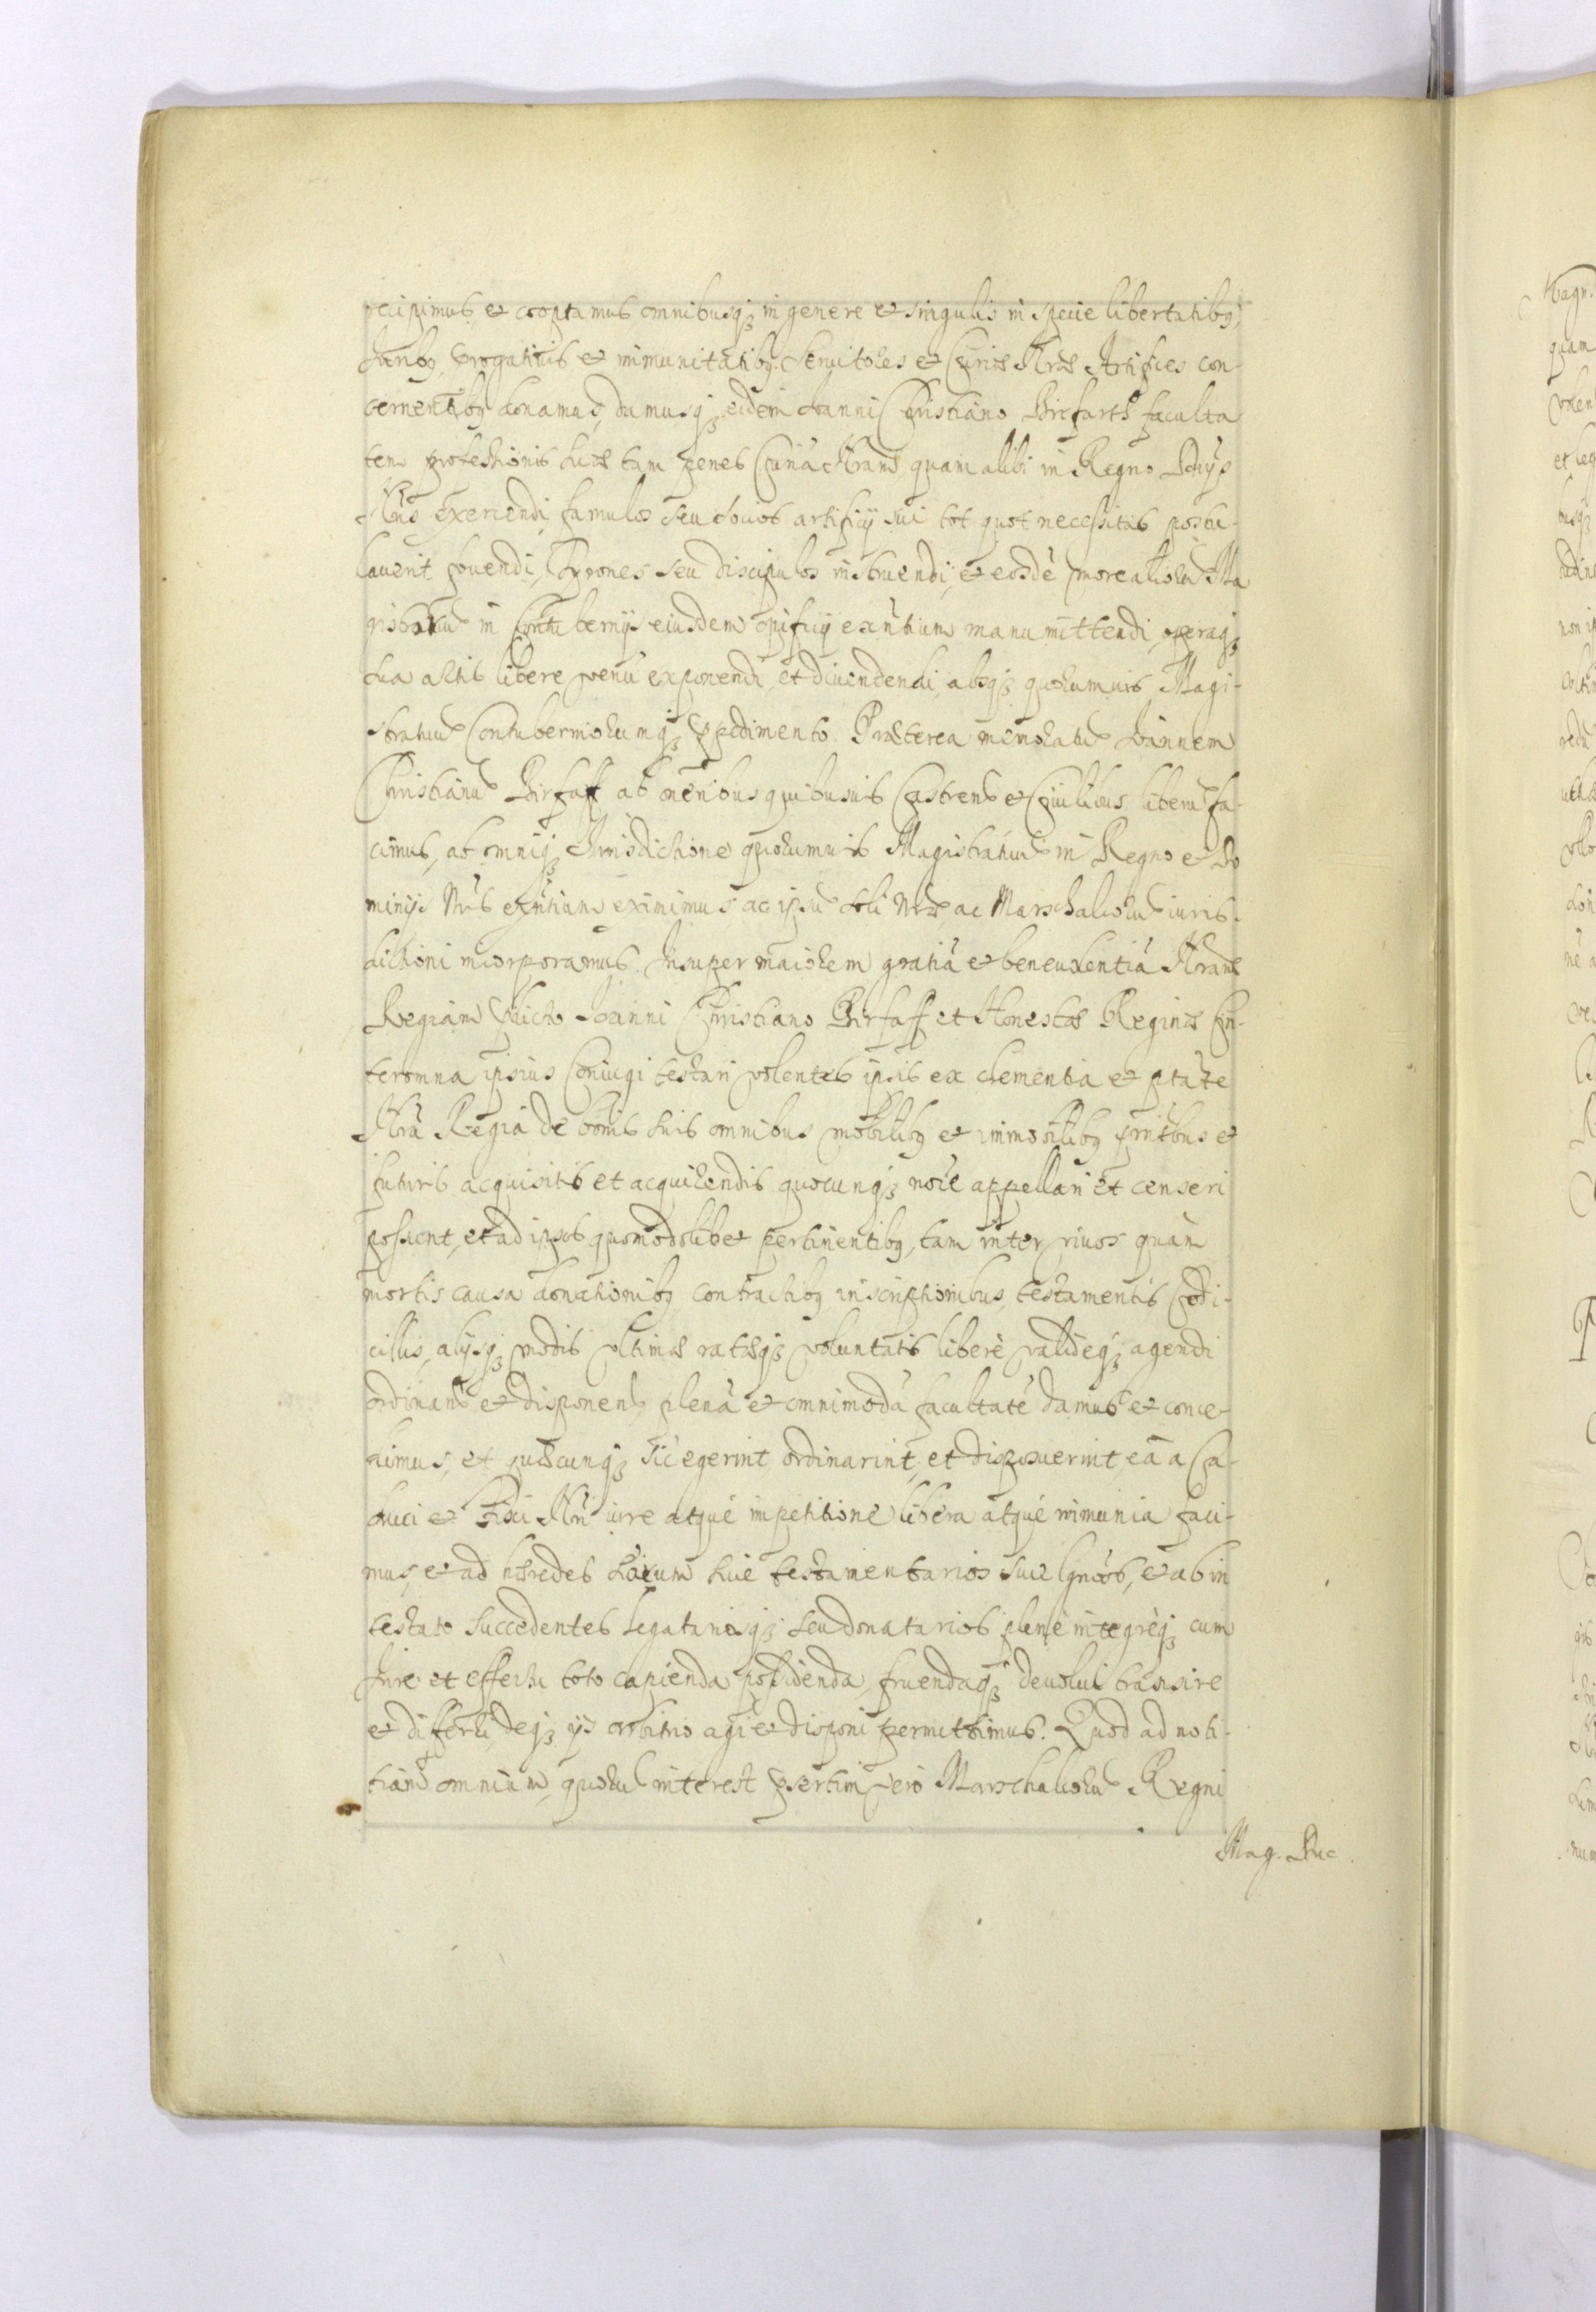 recipimus et cooptamus omnibusq₃ in genere et singulis in specie libertatibꝗ,
Juribꝗ, prærogatiuis et immunitatibꝗ Seruitores et Curiæ Nræ Artifices con-
cernentibꝗ donamus, damusq₃ eidem Joanni Christiano Birfaff faculta
tem professionis suæ tam penes Curiã Nram quam alibi in Regno Dnijs
Nris exercendi, famulos seu socios artificij sui tot quot necessitas postu-
lauerit fouendi, Tyrones seu discipulos instruendi, et eosdẽ more aliorũ Ma
gistrorũ in Contubernijs eiusdem opificij exñtium manumittendi, operaq₃
sua artis libere venũ exponendi, et diuendendi, absq₃ quorumuis Magi-
stratuũ Contuberniorumq₃ impedimento. Præterea memoratũ Joannem
Christianũ Birfaff ab oneribus quibusuis Castrens et Ciuilibus liberũ fa-
cimus, ab omniq₃ Jurisdictione quorumuis Magistratuũ in Regno et Do
minijs Nris exñtium eximimus, ac ipsũ soli Nræ, ac Marschalcorũ iuris-
dictioni incorporamus. Insuper maiorem gratiã et beneuolentiã Nram
Regiam prædicto Joanni Christiano Birfaff et Honestæ Reginæ
ipsius Coniugi testari volentes ipsis ex clementia et ptate
Nra Regia de bonis suis omnibus mobilibꝗ et immobilibꝗ præsentibus et
futuris acquisitis et acquirendis quocunq₃ noie appellari et censeri
possunt, et ad ipsos quomodolibet pertinentibꝗ, tam inter viuos quàm
mortis causa donationibꝗ contractibꝗ inscriptionibus, testamentis Codi-
cillis, alijsq₃ modis vltimæ ratæq₃ voluntatis liberè validèq₃ agendi
ordinand et disponend plenã et omnimodã facultatẽ damus et conce-
dimus, et quæcunq₃ sic egerint ordinarint, et disposuerint ea a Ca-
duci et Fisci Nri iure atque impetitione libera atque immunia faci-
mus, et ad hæredes eorum siue testamentarios siue et ab in
testato Succedentes Legatariosq₃ seu donatarios plenè integrèq₃ cum
Jure et effectu toto capienda possidenda, fruendaq₃ deuolui transire
et deq₃ ijs arbitrio agi et disponi permittimus. Quod ad noti-
tiam omnium, quorũ interest præsertim vero Marschalcorũ Regni
Mag. Duc.